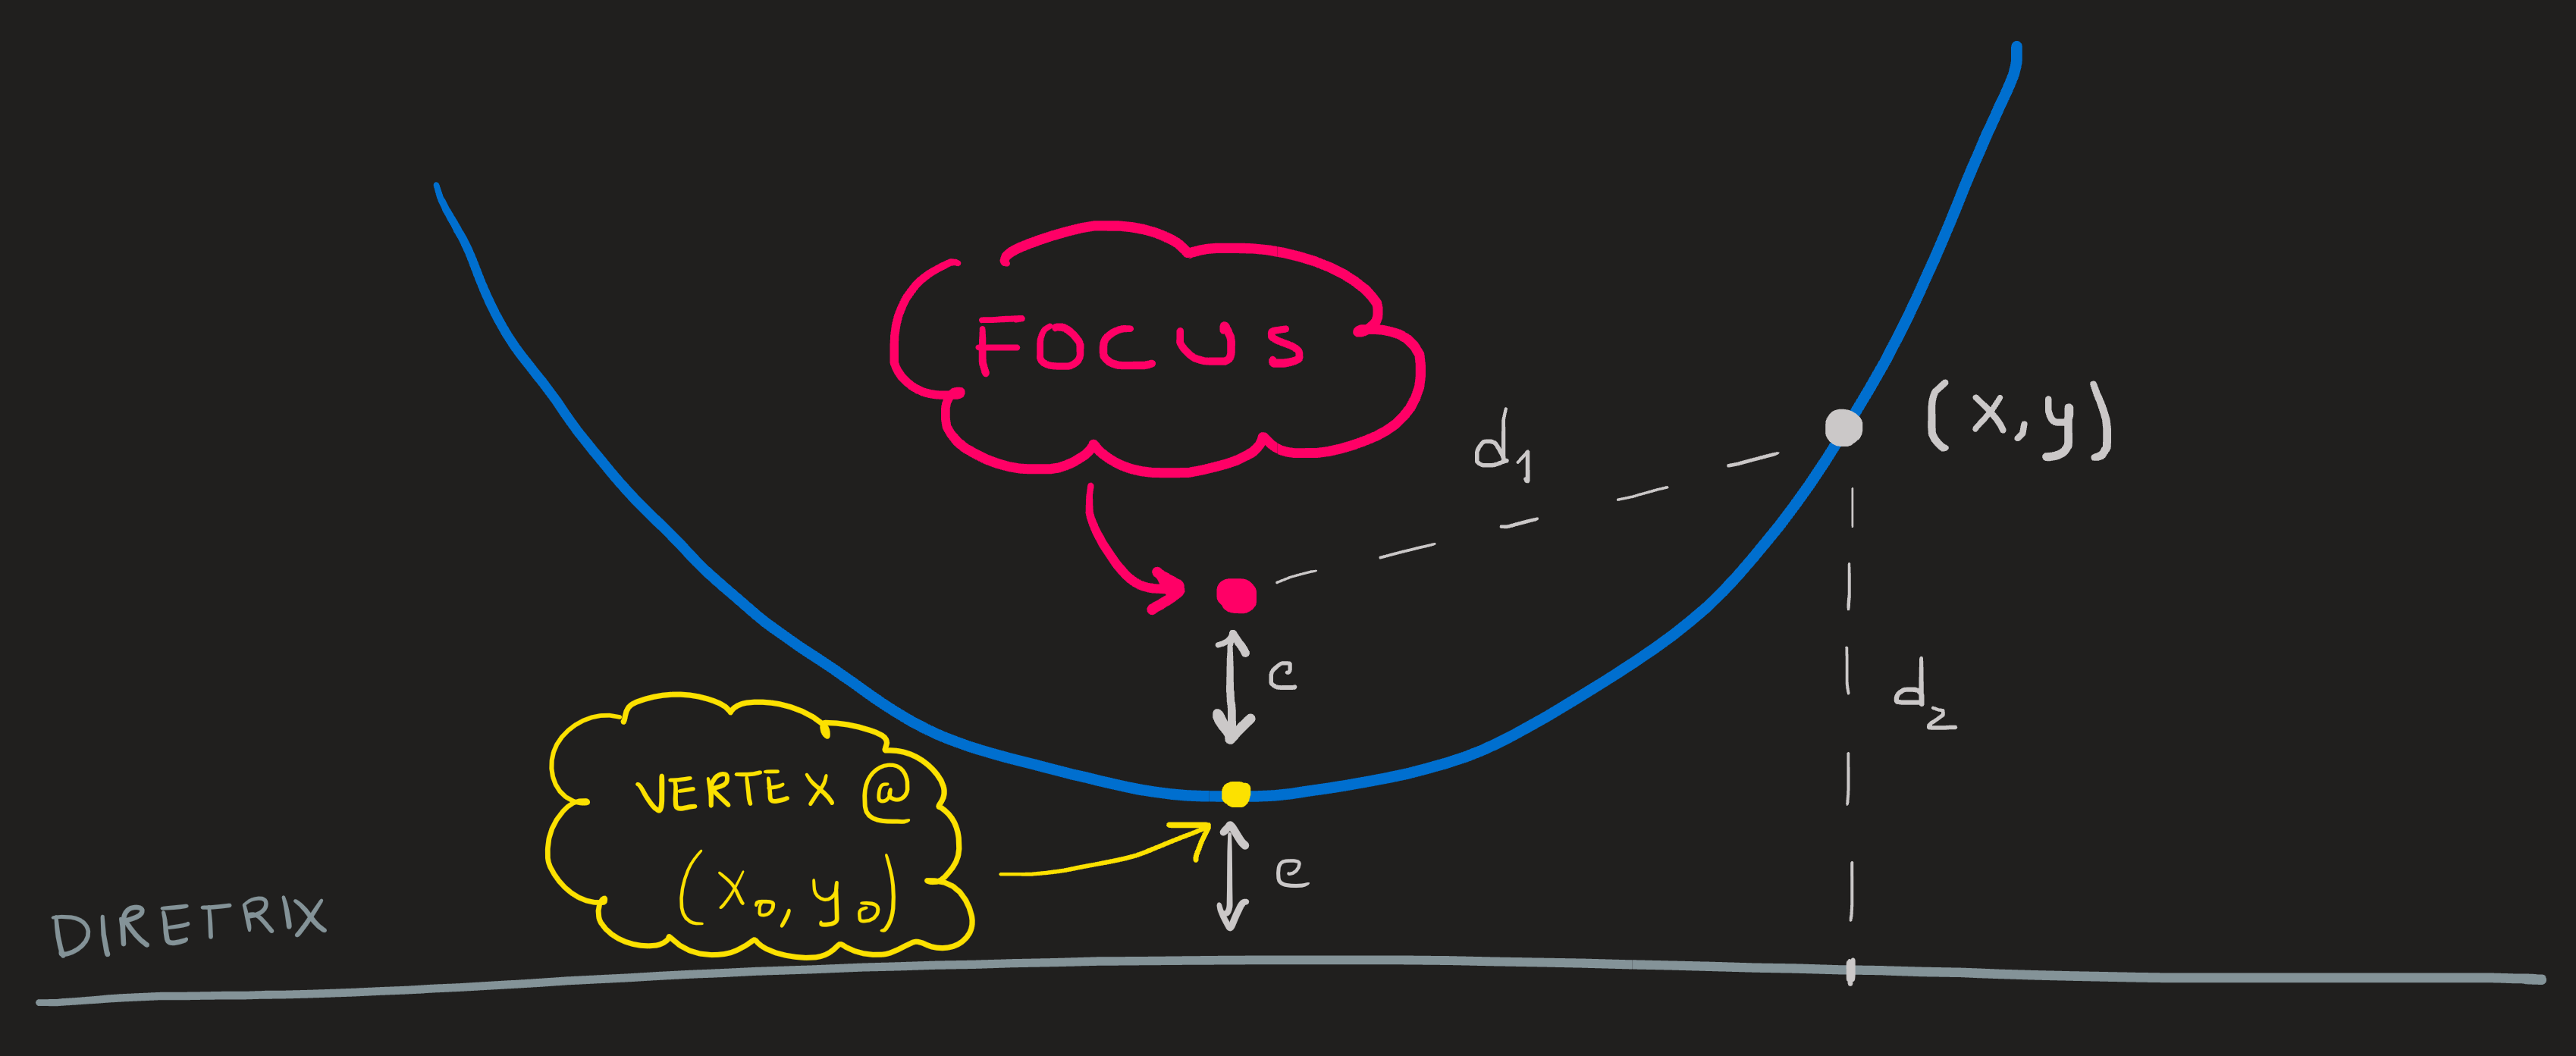 FOCUS
(x,y)
d1
c
d2
VERTEX @
(x0, y0)
c
DIRETRIX